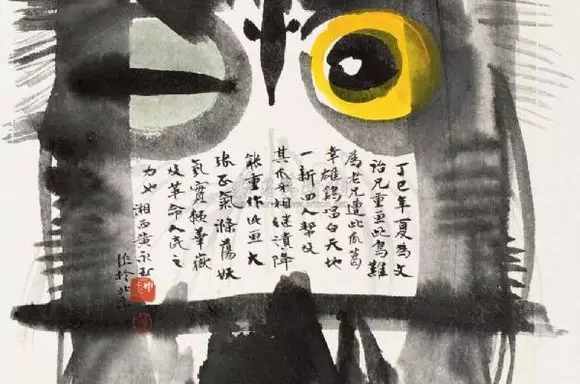 丁巳年夏為文
詒兄重畫此鳥難
為老兄遭此厄
幸雄鷄唱白天地
一新四人幫及
其爪牙相继潰降
能重作此画大
張正氣滌蕩妖
氛實賴華
及革命人民之
力也 湘西黄永玉
作於北京